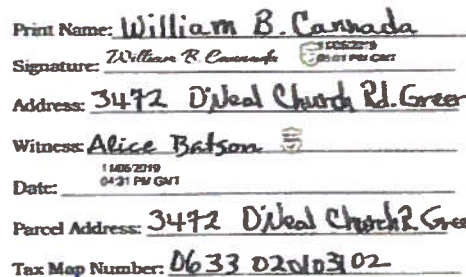 Print Name: William B. Cannada
Signature: William B. Cannada
Address: 3472 O'Neal Church Rd. Greer
Witness: Alice Batson
11/05/2019
Date: 04:31 PM GMT
Parcel Address: 3472 O'Neal Church R Gree
Tax Map Number: 0633 020103102